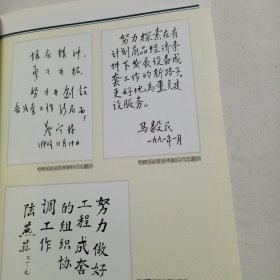 振奋精神,
勇于开拓,
努力开创设
备成套工作新局面!
蔡宁林
努力探索在有
计划商品经济条
件下发展设备成
套工作的新路子,
更好地为重点建
设服务。
马毅民
一九九一年一月
努力做好
工程成套
的组织协
调工作
陆燕荪